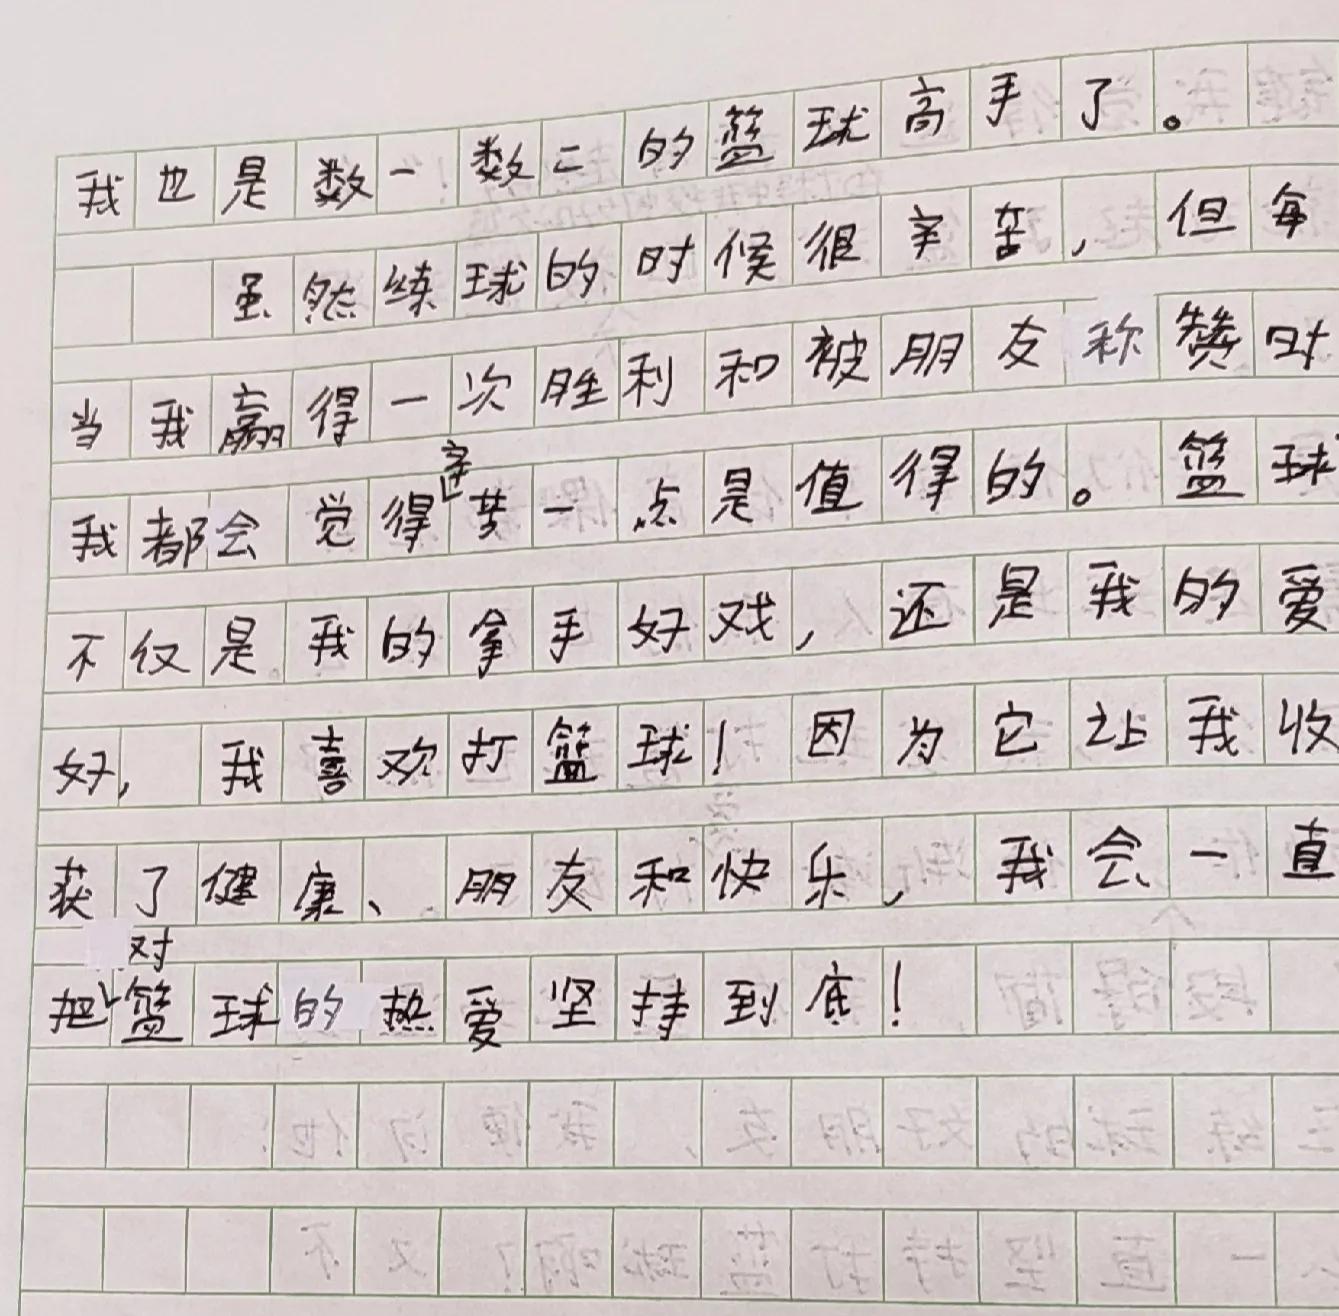 我也是数一数二的篮球高手了。
虽然练球的时候很辛苦，但每
当我赢得一次胜利和被朋友称赞时
我都会觉得辛苦一点是值得的。篮球
不仅是我的拿手好戏，还是我的爱
好，我喜欢打篮球！因为它让我收
获了健康、朋友和快乐，我会一直
把对篮球的热爱坚持到底！